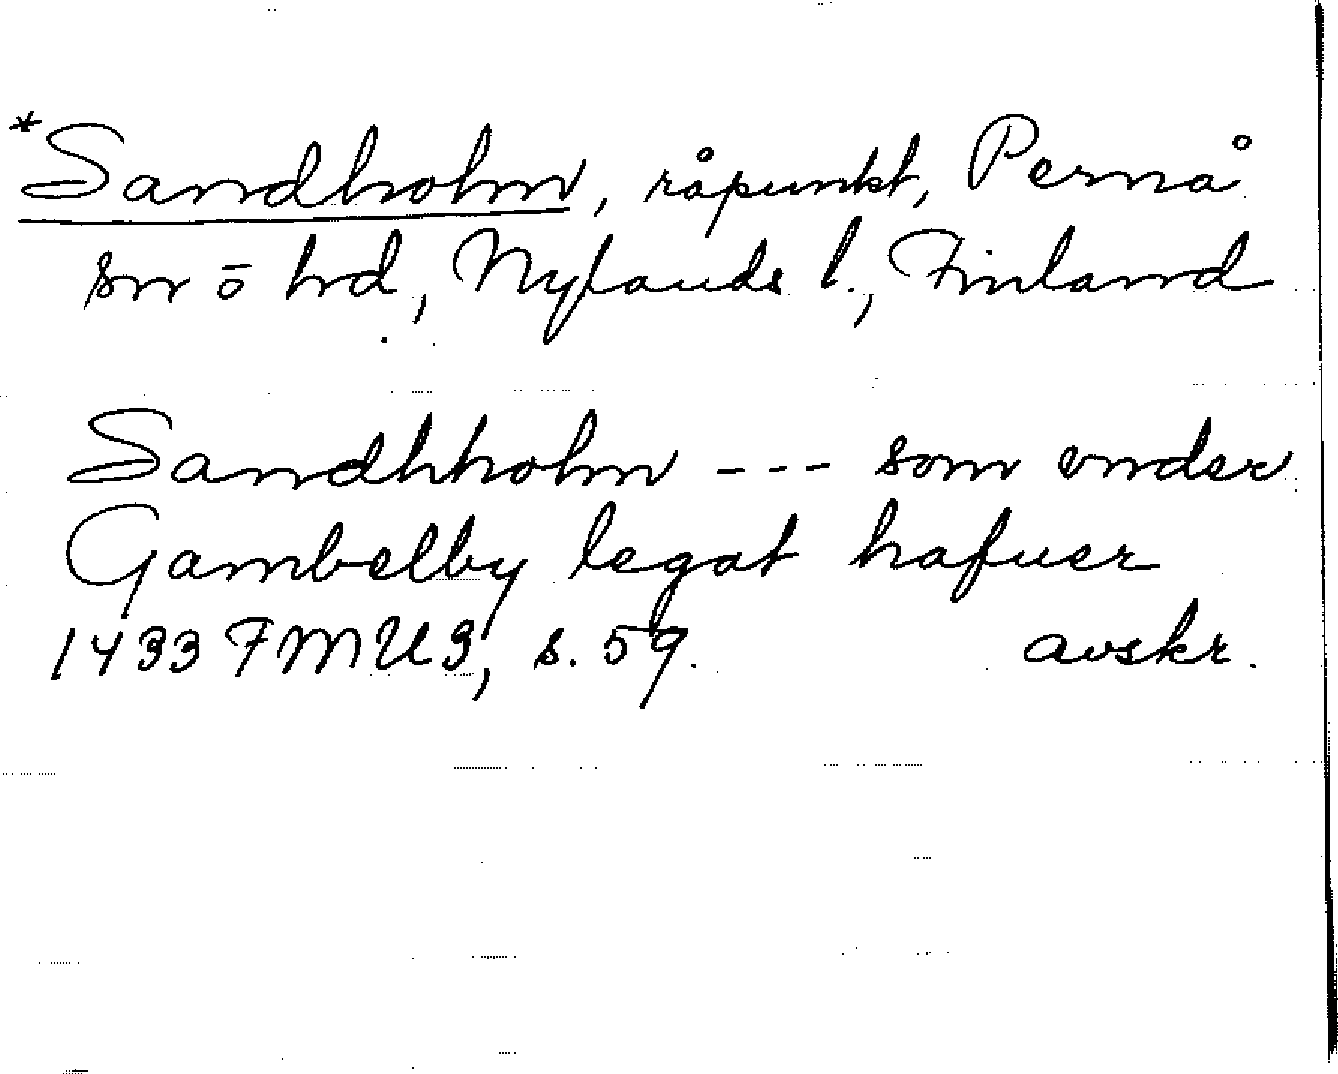 *Sandholm, råpunkt, Pernå
sn ō hd, Nylands l., Finland
Sandhholm --- som vnder
Gambelby legat hafuer
1433 FMU3, s. 59. avskr.